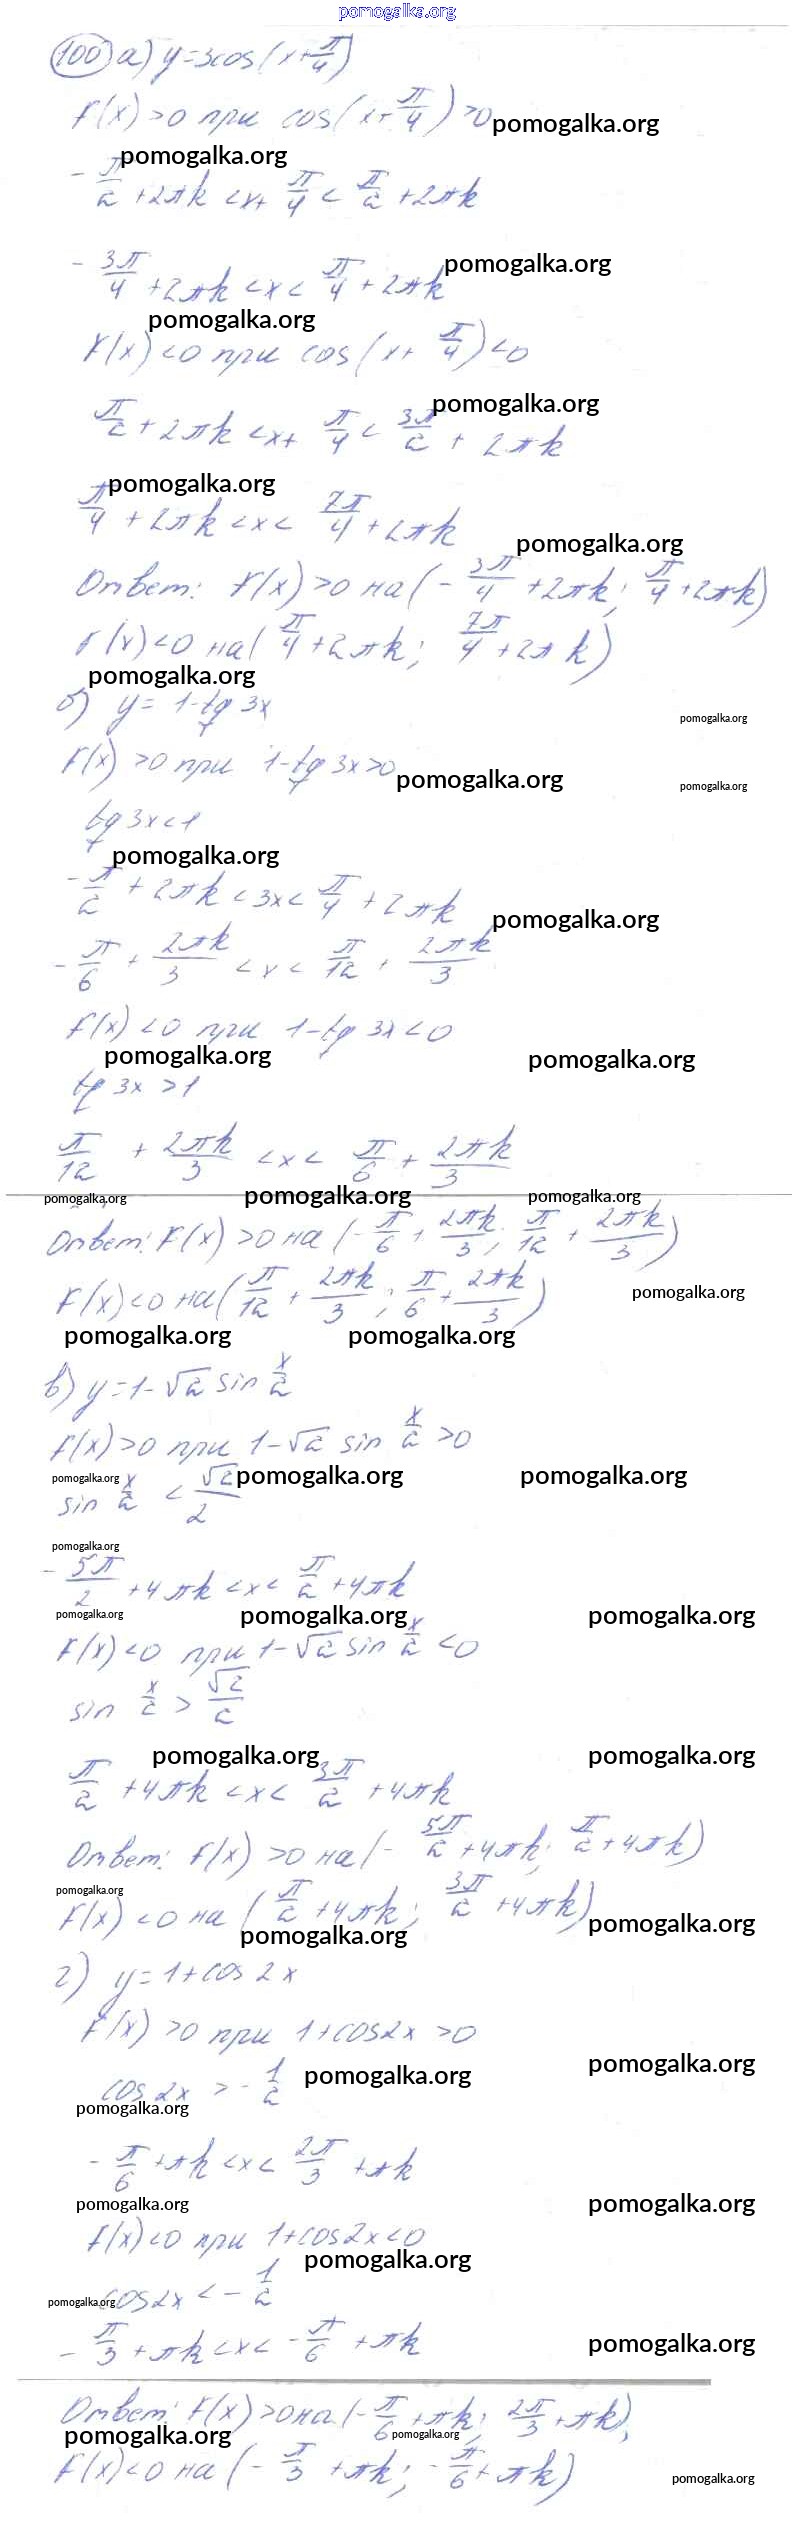 pomogalka.org
100) а) y=3cos(x+π/4)
f(x)>0 при cos(x+π/4)>0 pomogalka.org
pomogalka.org
-π/2+2πk<x+π/4<π/2+2πk
-3π/4+2πk<x<π/4+2πk pomogalka.org
pomogalka.org
f(x)<0 при cos(x+π/4)<0
pomogalka.org
π/2+2πk<x+π/4<3π/2+2πk
pomogalka.org
π/4+2πk<x<7π/4+2πk
pomogalka.org
Ответ: f(x)>0 на (-3π/4+2πk; π/4+2πk)
f(x)<0 на (π/4+2πk; 7π/4+2πk)
pomogalka.org
б) y=1-tg 3x pomogalka.org
f(x)>0 при 1-tg 3x>0 pomogalka.org pomogalka.org
tg 3x<1
pomogalka.org
-π/2+2πk<3x<π/4+2πk
pomogalka.org
-π/6+2πk/3<x<π/12+2πk/3
f(x)<0 при 1-tg 3x<0
pomogalka.org pomogalka.org
tg 3x>1
π/12+2πk/3<x<π/6+2πk/3
pomogalka.org pomogalka.org pomogalka.org
Ответ: f(x)>0 на (-π/6+2πk/3; π/12+2πk/3)
f(x)<0 на (π/12+2πk/3; π/6+2πk/3) pomogalka.org
pomogalka.org pomogalka.org
в) y=1-√2 sin x/2
f(x)>0 при 1-√2 sin x/2>0
pomogalka.org pomogalka.org pomogalka.org
sin x/2<√2/2
pomogalka.org
-5π/2+4πk<x<π/2+4πk
pomogalka.org pomogalka.org pomogalka.org
f(x)<0 при 1-√2 sin x/2<0
sin x/2>√2/2
pomogalka.org pomogalka.org
π/2+4πk<x<3π/2+4πk
Ответ: f(x)>0 на (-5π/2+4πk; π/2+4πk)
pomogalka.org
f(x)<0 на (π/2+4πk; 3π/2+4πk) pomogalka.org
pomogalka.org
г) y=1+cos 2x
f(x)>0 при 1+cos2x>0
pomogalka.org pomogalka.org
cos 2x>-1/2
pomogalka.org
-π/6+πk<x<2π/3+πk
pomogalka.org pomogalka.org
f(x)<0 при 1+cos2x<0
pomogalka.org
cos2x<-1/2
pomogalka.org
-π/3+πk<x<-π/6+πk pomogalka.org
Ответ: f(x)>0 на (-π/6+πk; 2π/3+πk),
pomogalka.org pomogalka.org
f(x)<0 на (-π/3+πk; -π/6+πk) pomogalka.org